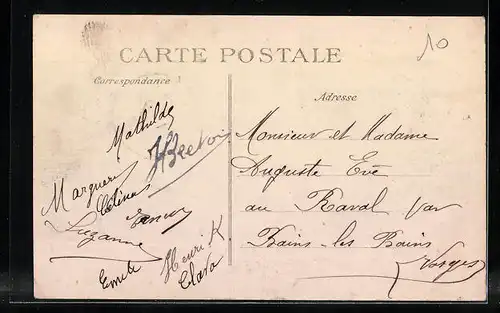 CARTE POSTALE
10
Correspondance
Adresse
Mathilde
Suzanne
Emile
Henri K
Clara
Monsieur et Madame
Auguste Eve
au Raval par
Bains-les Bains
(Vosges)